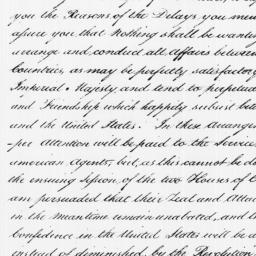 you the Reasons of the Delays you
assure you that nothing shall be
arrange and conduct all Affairs
Countries, as may be perfectly
Imperial Majesty and tend to
and Friendship which happily subsist
and the United States: In these
-per Attention will be paid to the
american Agents, but, as this cannot be
the ensuing Session of the two Houses of
am persuaded that their Zeal and
in the meantime remain unabated, and
Confidence in the United States will be
instead of diminished, by the Revolution